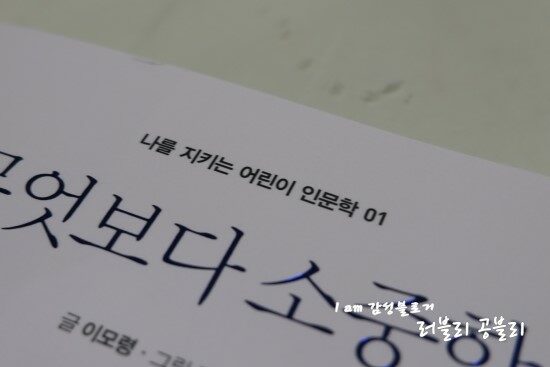 나를 지키는 어린이 인문학 01
무엇보다 소중한
글 이모령 · 그림
I am 감성블로거
러블리 공블리